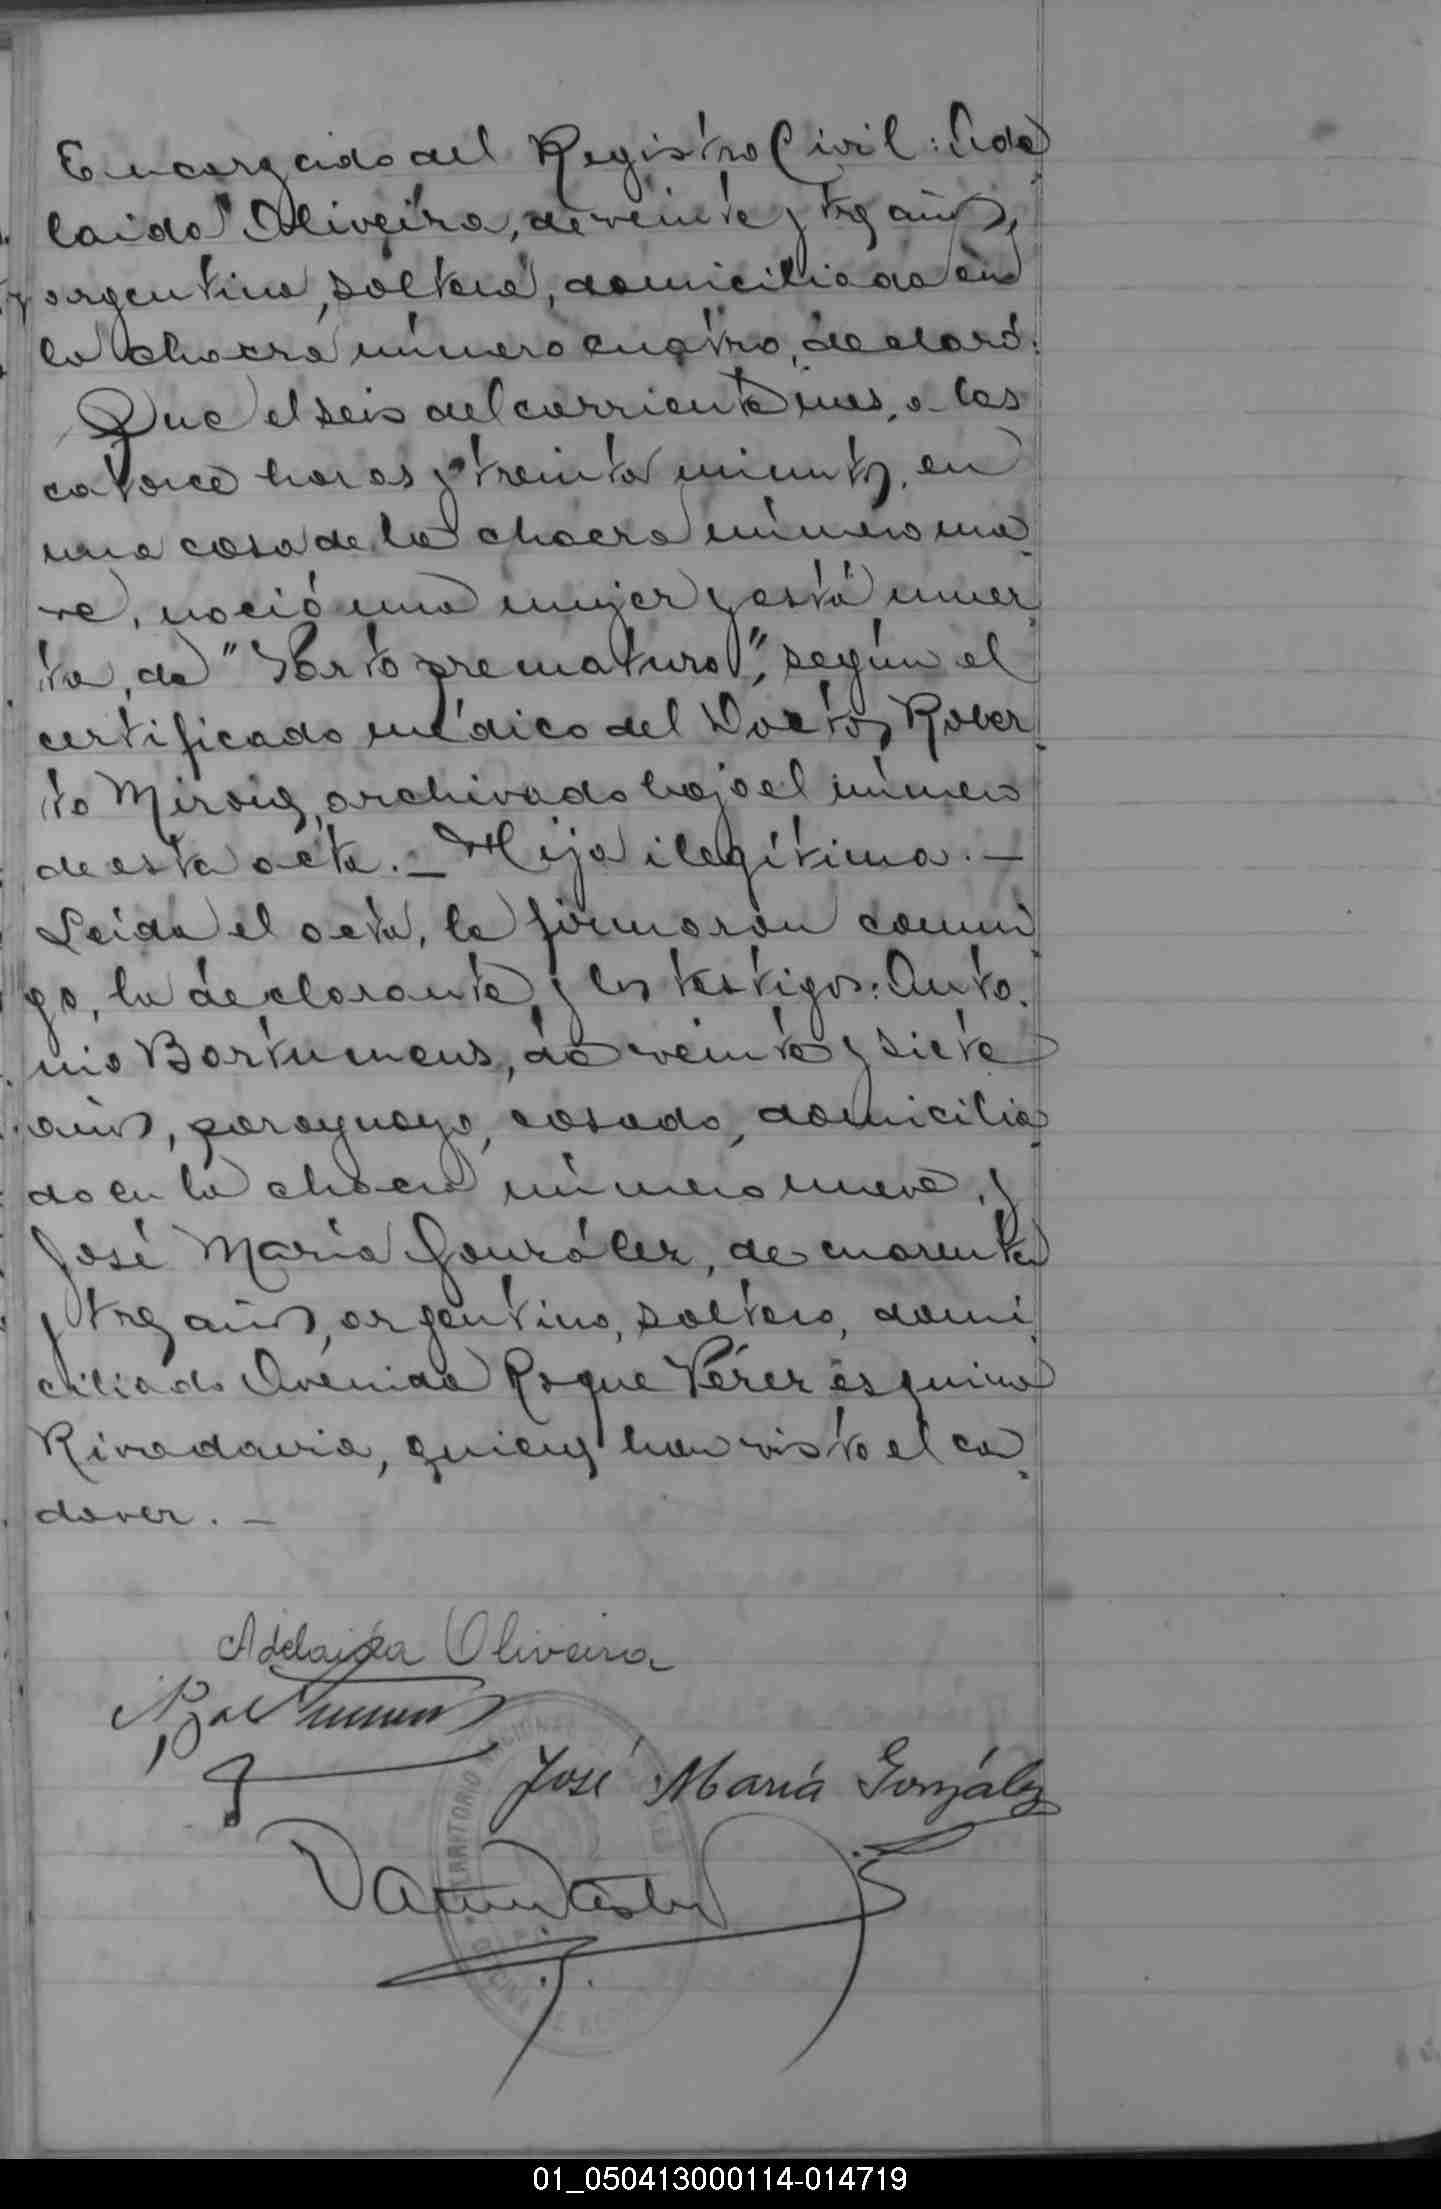 Encargado del Registro Civil: Ade
laida Oliveira, de veinte y tres años,
argentina, soltera, domiciliada en
la chacra número cuatro, declaró:
Que el seis del corriente mes, a las
catorce horas y treinta minutos, en
una casa de la chacra número nue
ve, nació una mujer y está muer
ta, de "Parto prematuro", según el
certificado médico del Doctor Rober
to archivado bajo el número
de esta acta. _ Hija ilegítima. _
Leída el acta, la firmaron conmi
go, la declarante y los testigos: Anto
nio Bortumeus, de veinte y siete
años, paraguayo, casado, domicilia
do en la chacra número nueve, y
José María González, de cuarenta
y tres años, argentino, soltero, domi
ciliado Avenida Roque Pérez esquina
Rivadavia, quienes han visto el ca
daver. _
Adelaida Oliveira
José María González
TERRITORIO NACIONAL DE
01_050413000114-014719